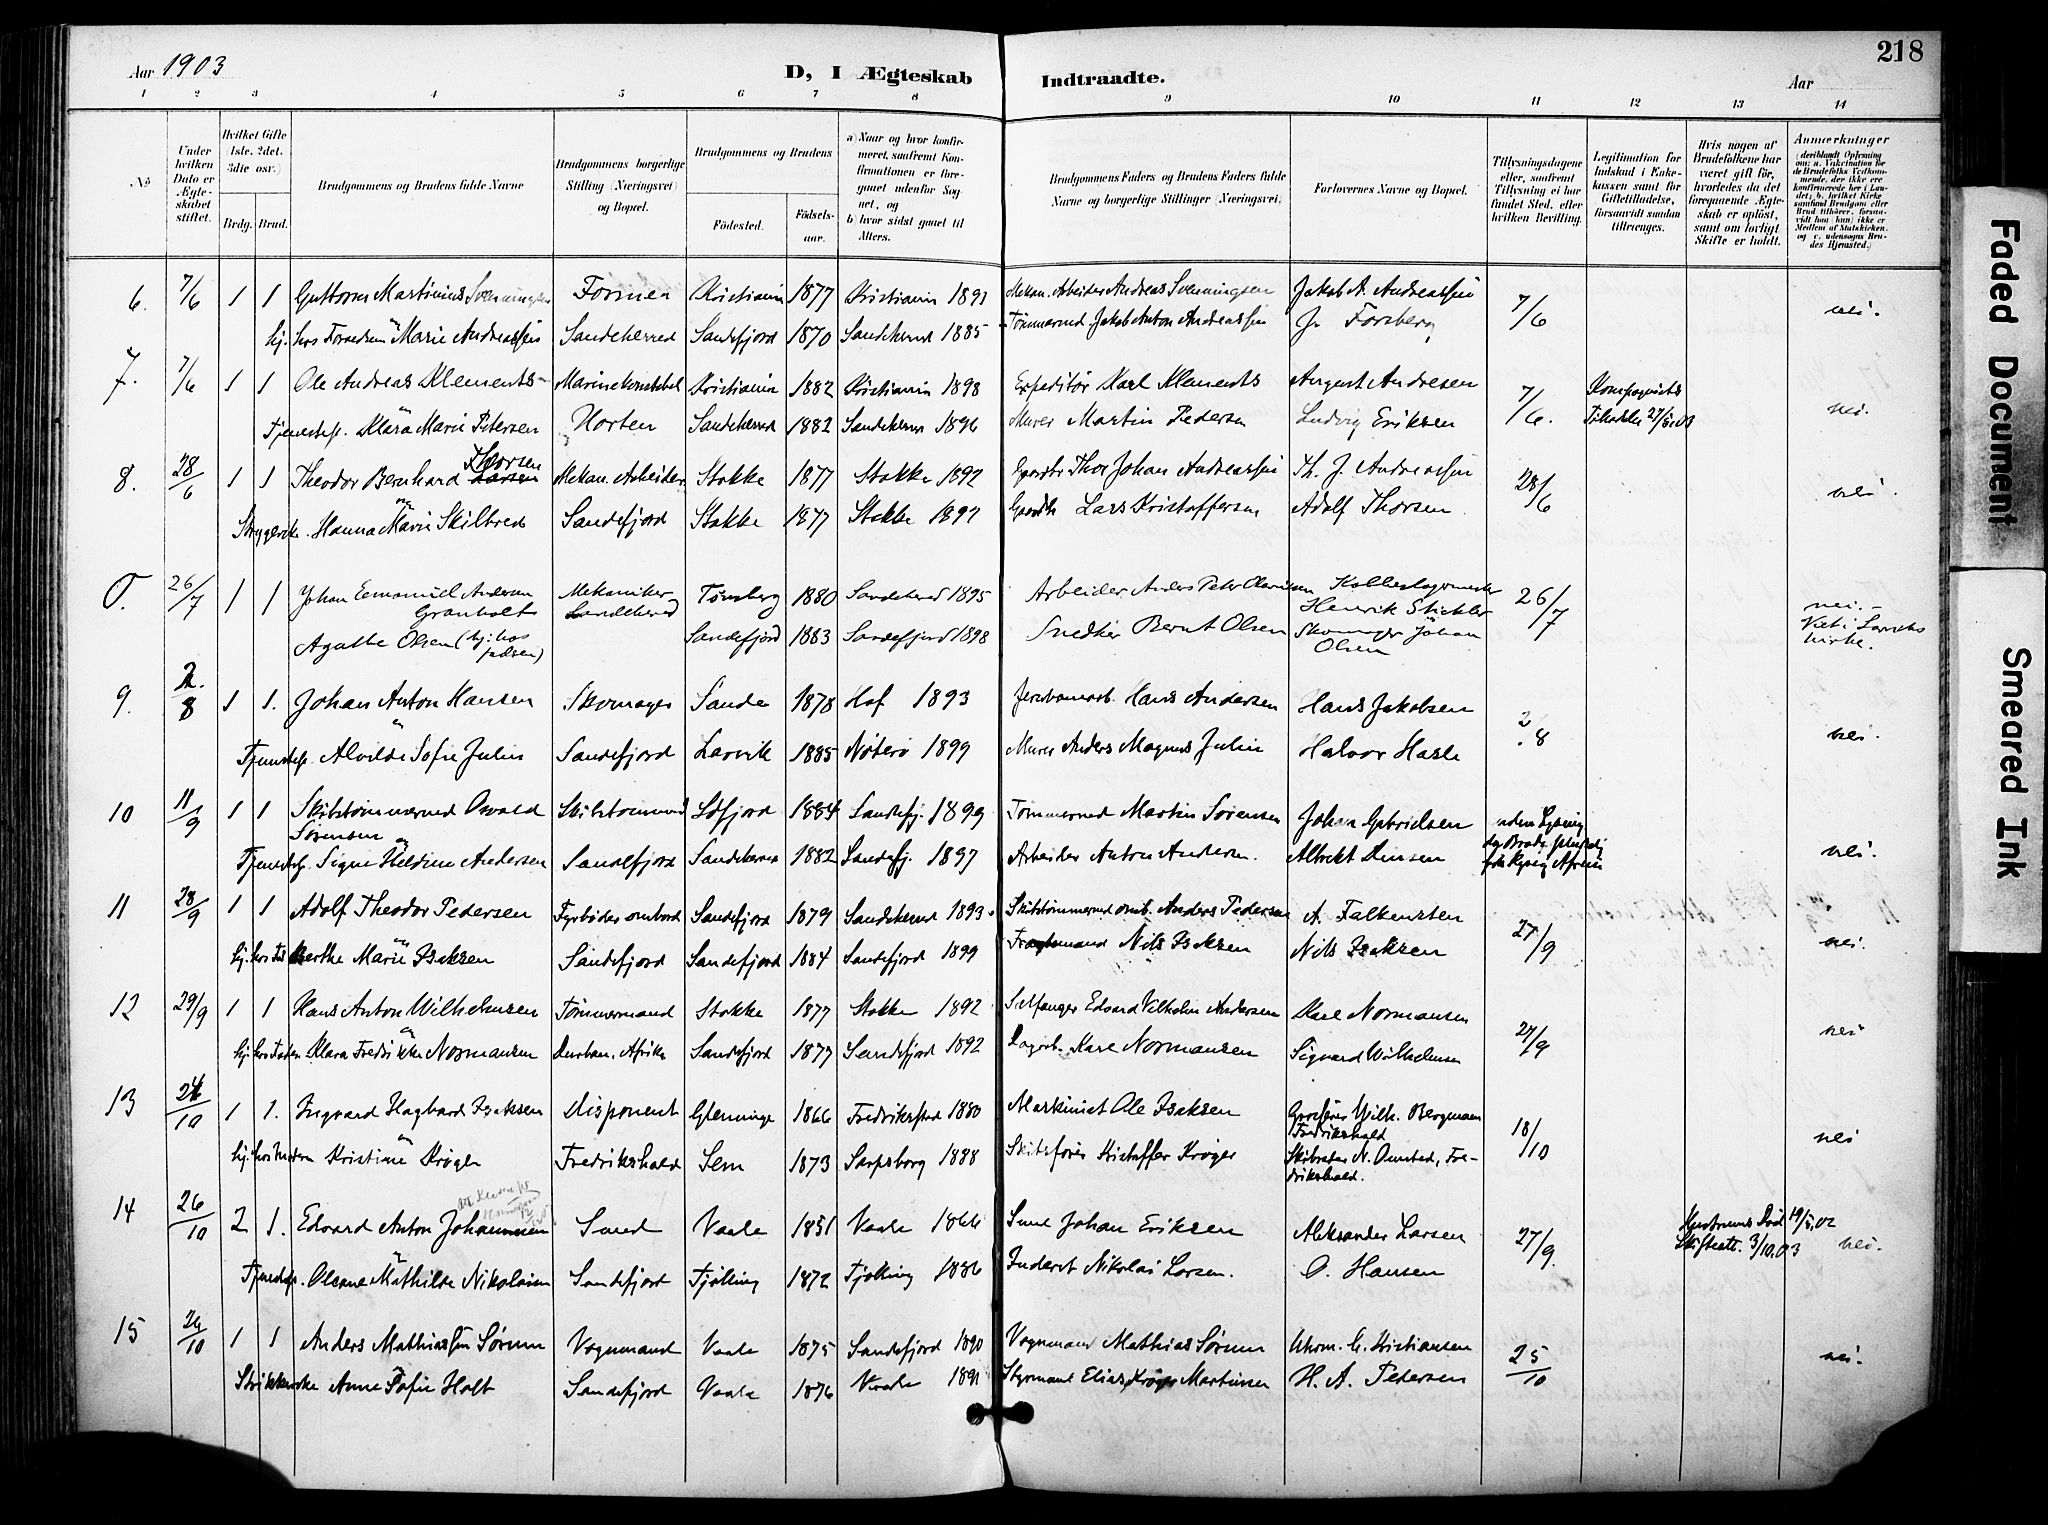 Aar 1903
D, I Ægteskab Indtraadte.
Aar
218
1 2 3 4 5 6 7 8 9 10 11 12 13 14
No
Under hvilken Dato er Ægteskabet stiftet.
Hvilket Gifte (1ste. 2det. 3die osv.)
Brdg. Brud.
Brudgommens og Brudens fulde Navne
Brudgommens borgerlige Stilling (Næringsvei) og Bopæl.
Brudgommens og Brudens
Fødested.
Fødselsaar.
a) Naar og hvor konfirmeret, saafremt Konfirmationen er foregaaet udenfor Sognet, og
b) hvor sidst gaaet til Alters.
Brudgommens Faders og Brudens Faders fulde Navne og borgerlige Stillinger (Næringsvei)
Forlovernes Navne og Bopæl.
Tillysningsdagene eller, saafremt Tillysning ei har fundet Sted, efter hvilken Bevilling.
Legitimation for Indskud i Enkekassen samt for Giftetilladelse, forsaavidt saadan tiltrænges.
Hvis nogen af Brudefolkene har været gift før, hvorledes da det foregaaende Ægteskab er opløst, samt om lovligt Skifte er holdt.
Anmærkninger
6. 7/6 1 1 Guttorm Martinius Svenningsen Former Kristiania 1877 Kristiania 1891 Mekan. Arbeider Andreas Svenningsen Jakob A. Andreassen 7/6 nei.
hj. hos Forældrene Marie Andreassen Sandeherred Sandefjord 1870 Sandeherred 1885 Tømmermd Jakob Anton Andreassen J. Forsberg
7. 7/6 1 1 Ole Andreas Klements Marinekonstabel Kristiania 1882 Kristiania 1898 Expeditør Karl Klements August Andresen 7/6. nei.
Tjenestep. Klara Marie Petersen Horten Sandeherred 1882 Sandeherred 1896 Murer Martin Pedersen Ludvig Eriksen
8. 28/6 1 1 Theodor Bernhard Thorsen Mekan. Arbeider Stokke 1877 Stokke 1892 Gaardbr Thor Johan Andreassen Th. J. Andreassen 28/6 nei.
Strygerske. Hanna Marie Skilbred Sandefjord Stokke 1877 Stokke 1892 Gaardb Lars Kristoffersen Adolf Thorsen
O. 26/7 1 1 Johan Emanuel Andersen Granholt Mekaniker Sandeherred Tønsberg 1880 Sandeherred 1895 Arbeider Anders Peter Henrik 26/7 nei. –
Agathe Olsen (hj. hos Sandefjord 1883 Sandefjord 1898 Snedker Bernt Olsen Skomager Johan Olsen Viet i Larviks kirke.
9. 2./8 1 1. Johan Anton Hansen Skomager Sande 1878 Hof 1893 Jernbanearb. Hans Andersen Hans Jakobsen 2/8 nei.
Tjenestep. Alvilde Sofie Julin Sandefjord Larvik 1885 Nøterø 1899 Murer Anders Magnus Julin Halvor Hasle
10 11/9 1 1 Skibstømmermd Osvald Sørensen Skibstømmermd Sdfjord 1884 Sandefj. 1899 Tømmermd Martin Sørensen Johan Gabrielsen uden Lysning nei.
Tjenestep. Signe Heldine Andersen Sandefjord Sandeherred 1882 Sandefj. 1897 Arbeider Anton Andersen. Albrekt Jensen
11 28/9 1 1 Adolf Theodor Pedersen Fyrbøder ombord Sandefjord 1879 Sandeherred 1893. Skibstømmermd omb. Anders Pedersen A. Falkensten 27/9 nei.
Berthe Marie Isaksen Sandefjord Sandefjord 1884 Sandefjord 1899 Nils Isaksen Nils Isaksen
12 29/9 1 1 Hans Anton Wilhelmsen Tømmermand Stokke 1877 Stokke 1892 Selfanger Edvard Vilhelm Andersen Karl Normansen 27/9 nei
hj. hos Fader Klara Fredrikke Normansen Durban, Afrika Sandefjord 1877 Sandefjord 1892 Karl Normansen Sigvard Wilhelmsen
13 24/10 1 1. Ingvard Hagbard Isaksen Disponent Glemminge 1866 Fredrikstad 1880 Maskinist Ole Isaksen Grosserer Wilh. Bergmann Fredrikshald 18/10 nei
hj. hos Moderen Kristine Krøger Fredrikshald Sem 1873 Sarpsborg 1888 Skibsfører Kristoffer Krøger Skibsreder N. Fredrikshald.
14 26/10 2 1. Edvard Anton Johannesen Smed Vaale 1851 Vaale 1866 Smed Johan Eriksen Aleksander Larsen 27/9. Hustruens Død 19/5.02 Skifteatt. 3/10.03 nei.
Tjenestep. Oleane Mathilde Nikolaisen Sandefjord Tjølling 1872 Tjølling 1886 Inderst Nikolai Larsen. O. Hansen
15 24/10 1 1 Anders Mathiassen Sørum Vognmand Vaale 1875 Sandefjord 1890 Vognmand Mathias Sørum Uhrm. C. Kristiansen 25/10 nei.
Strikkerske Anne Sofie Holt Sandefjord Vaale 1876 Vaale 1891 Styrmand Elias Krøger Martinsen H. A. Petersen
Faded Document
Smeared Ink